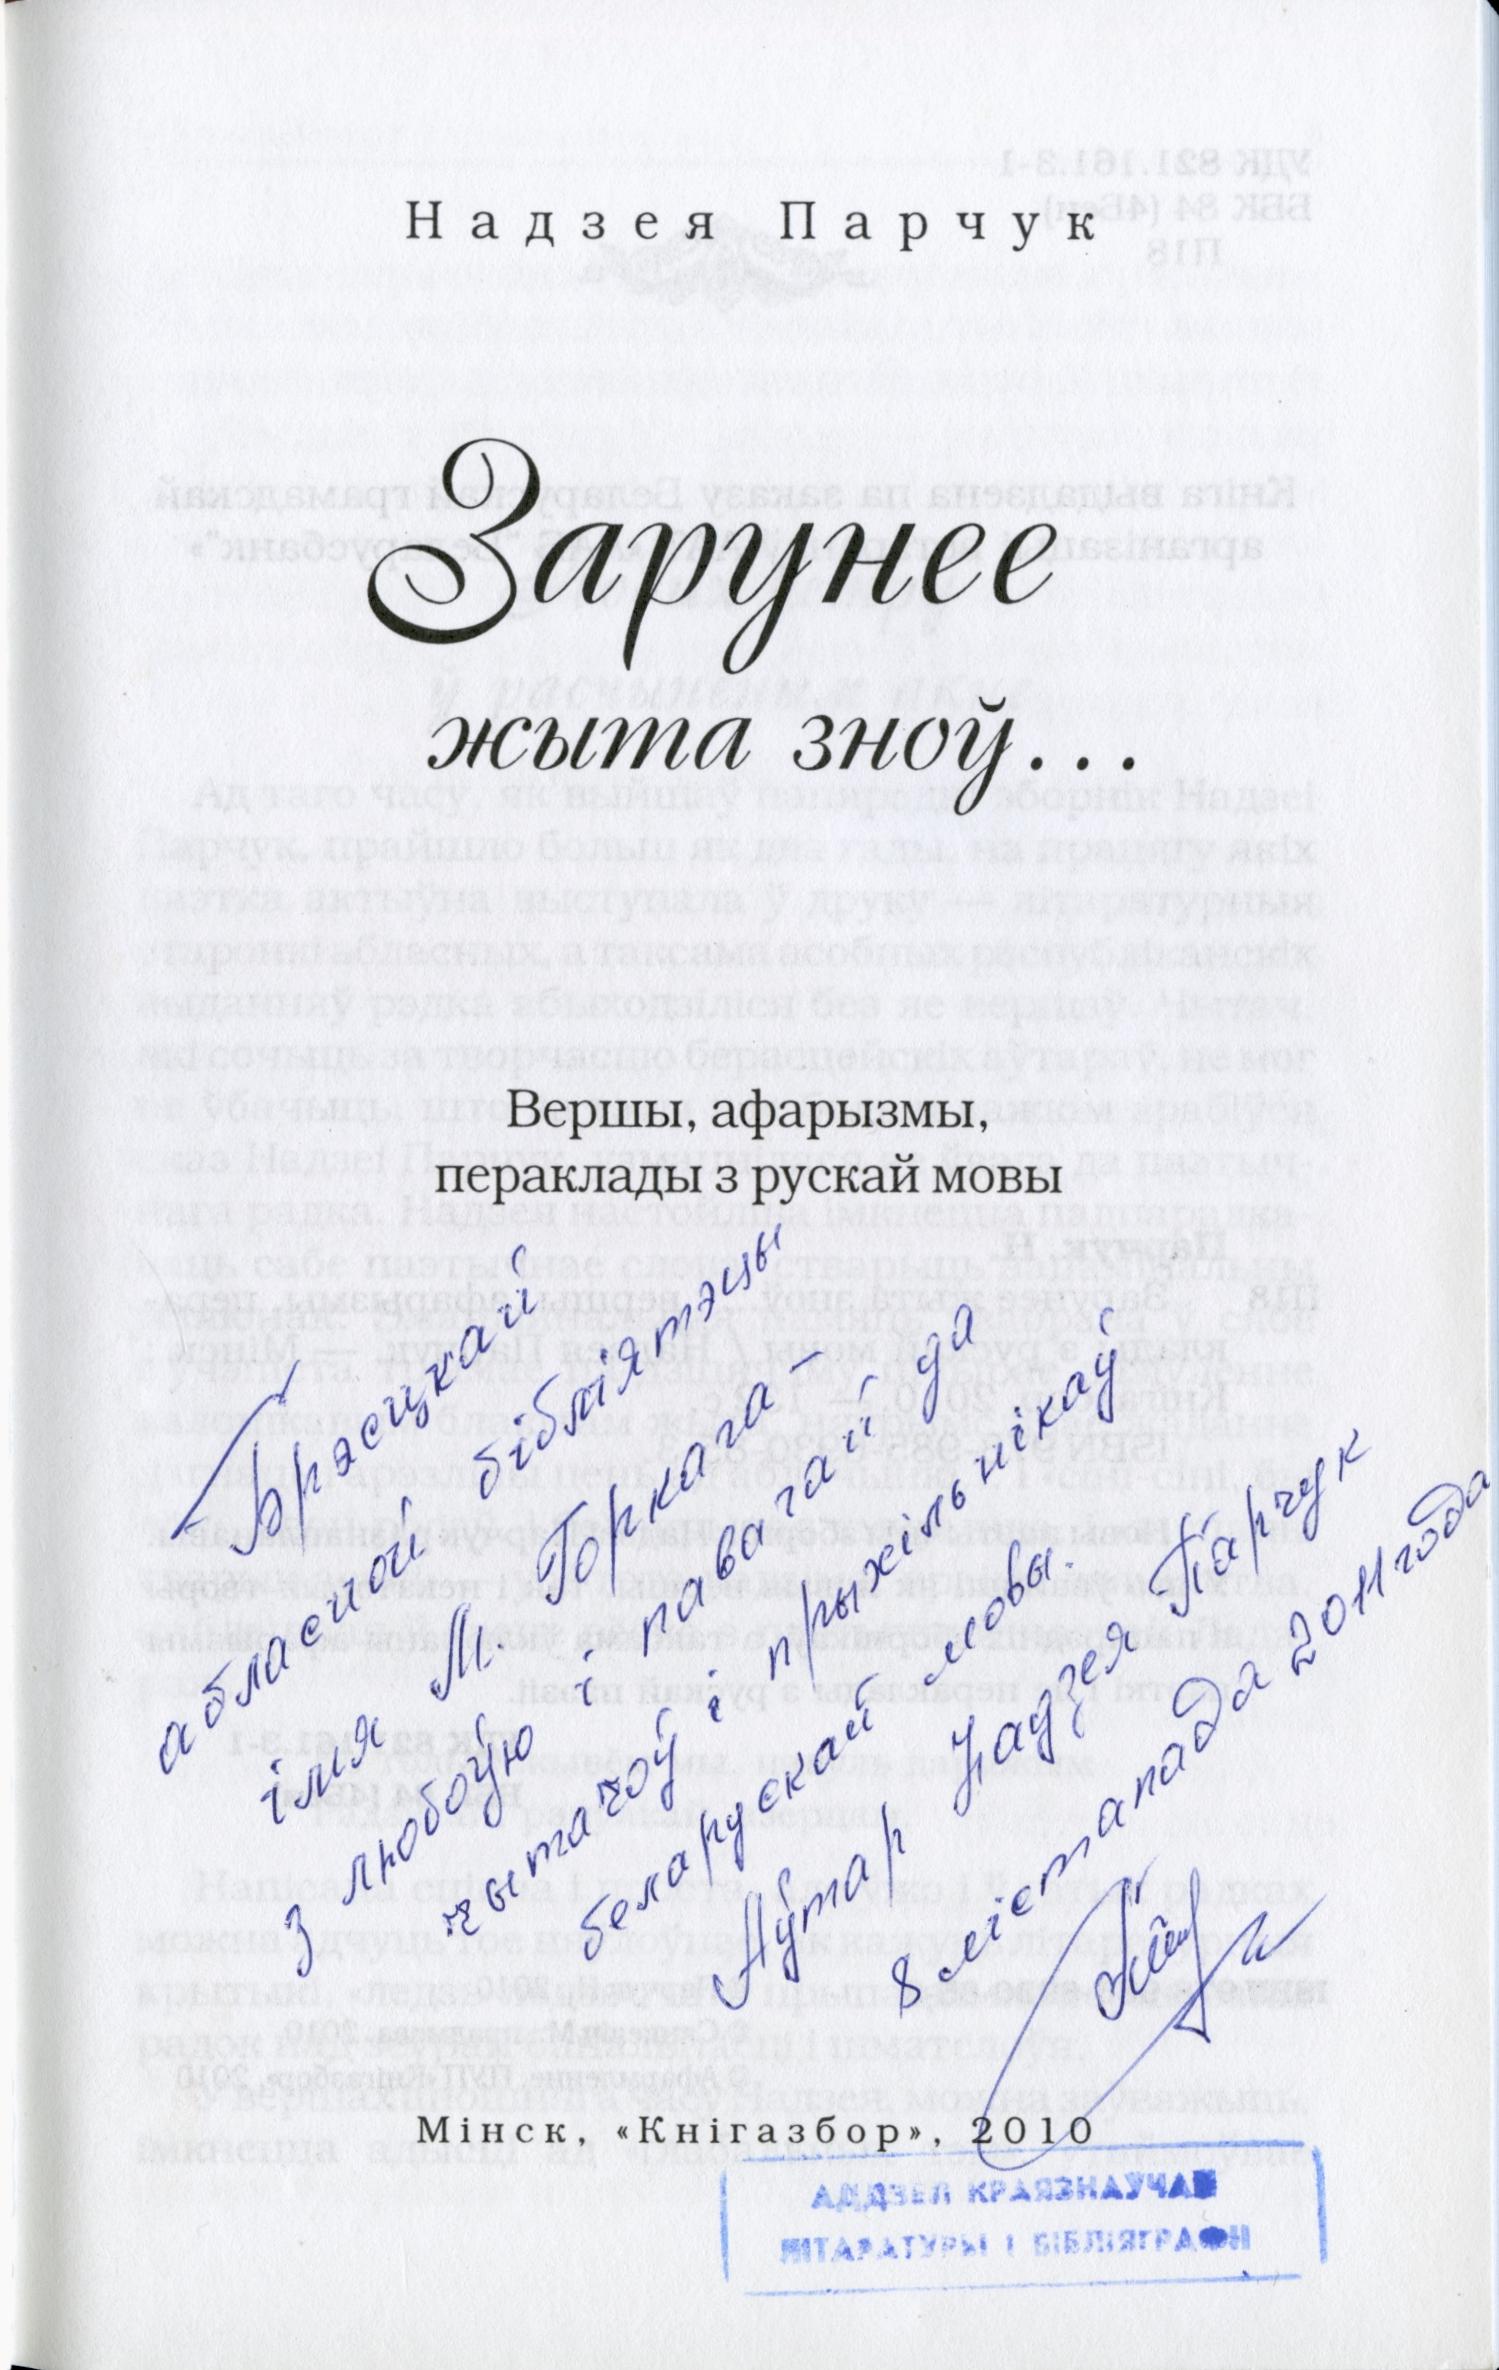 Надзея Парчук
Зарунее
жыта зноў...
Вершы, афарызмы,
пераклады з рускай мовы
Брэсцкай
абласной бібліятэцы
імя М. Горкага –
з любоўю і павагай да
чытачоў і прыхільнікаў
беларускай мовы.
Аўтар Надзея Парчук
8 лістапада 2011 года
Мінск, «Кнігазбор», 2010
АДДЗЕЛ КРАЯЗНАЎЧАЙ
ЛІТАРАТУРЫ І БІБЛІЯГРАФІІ